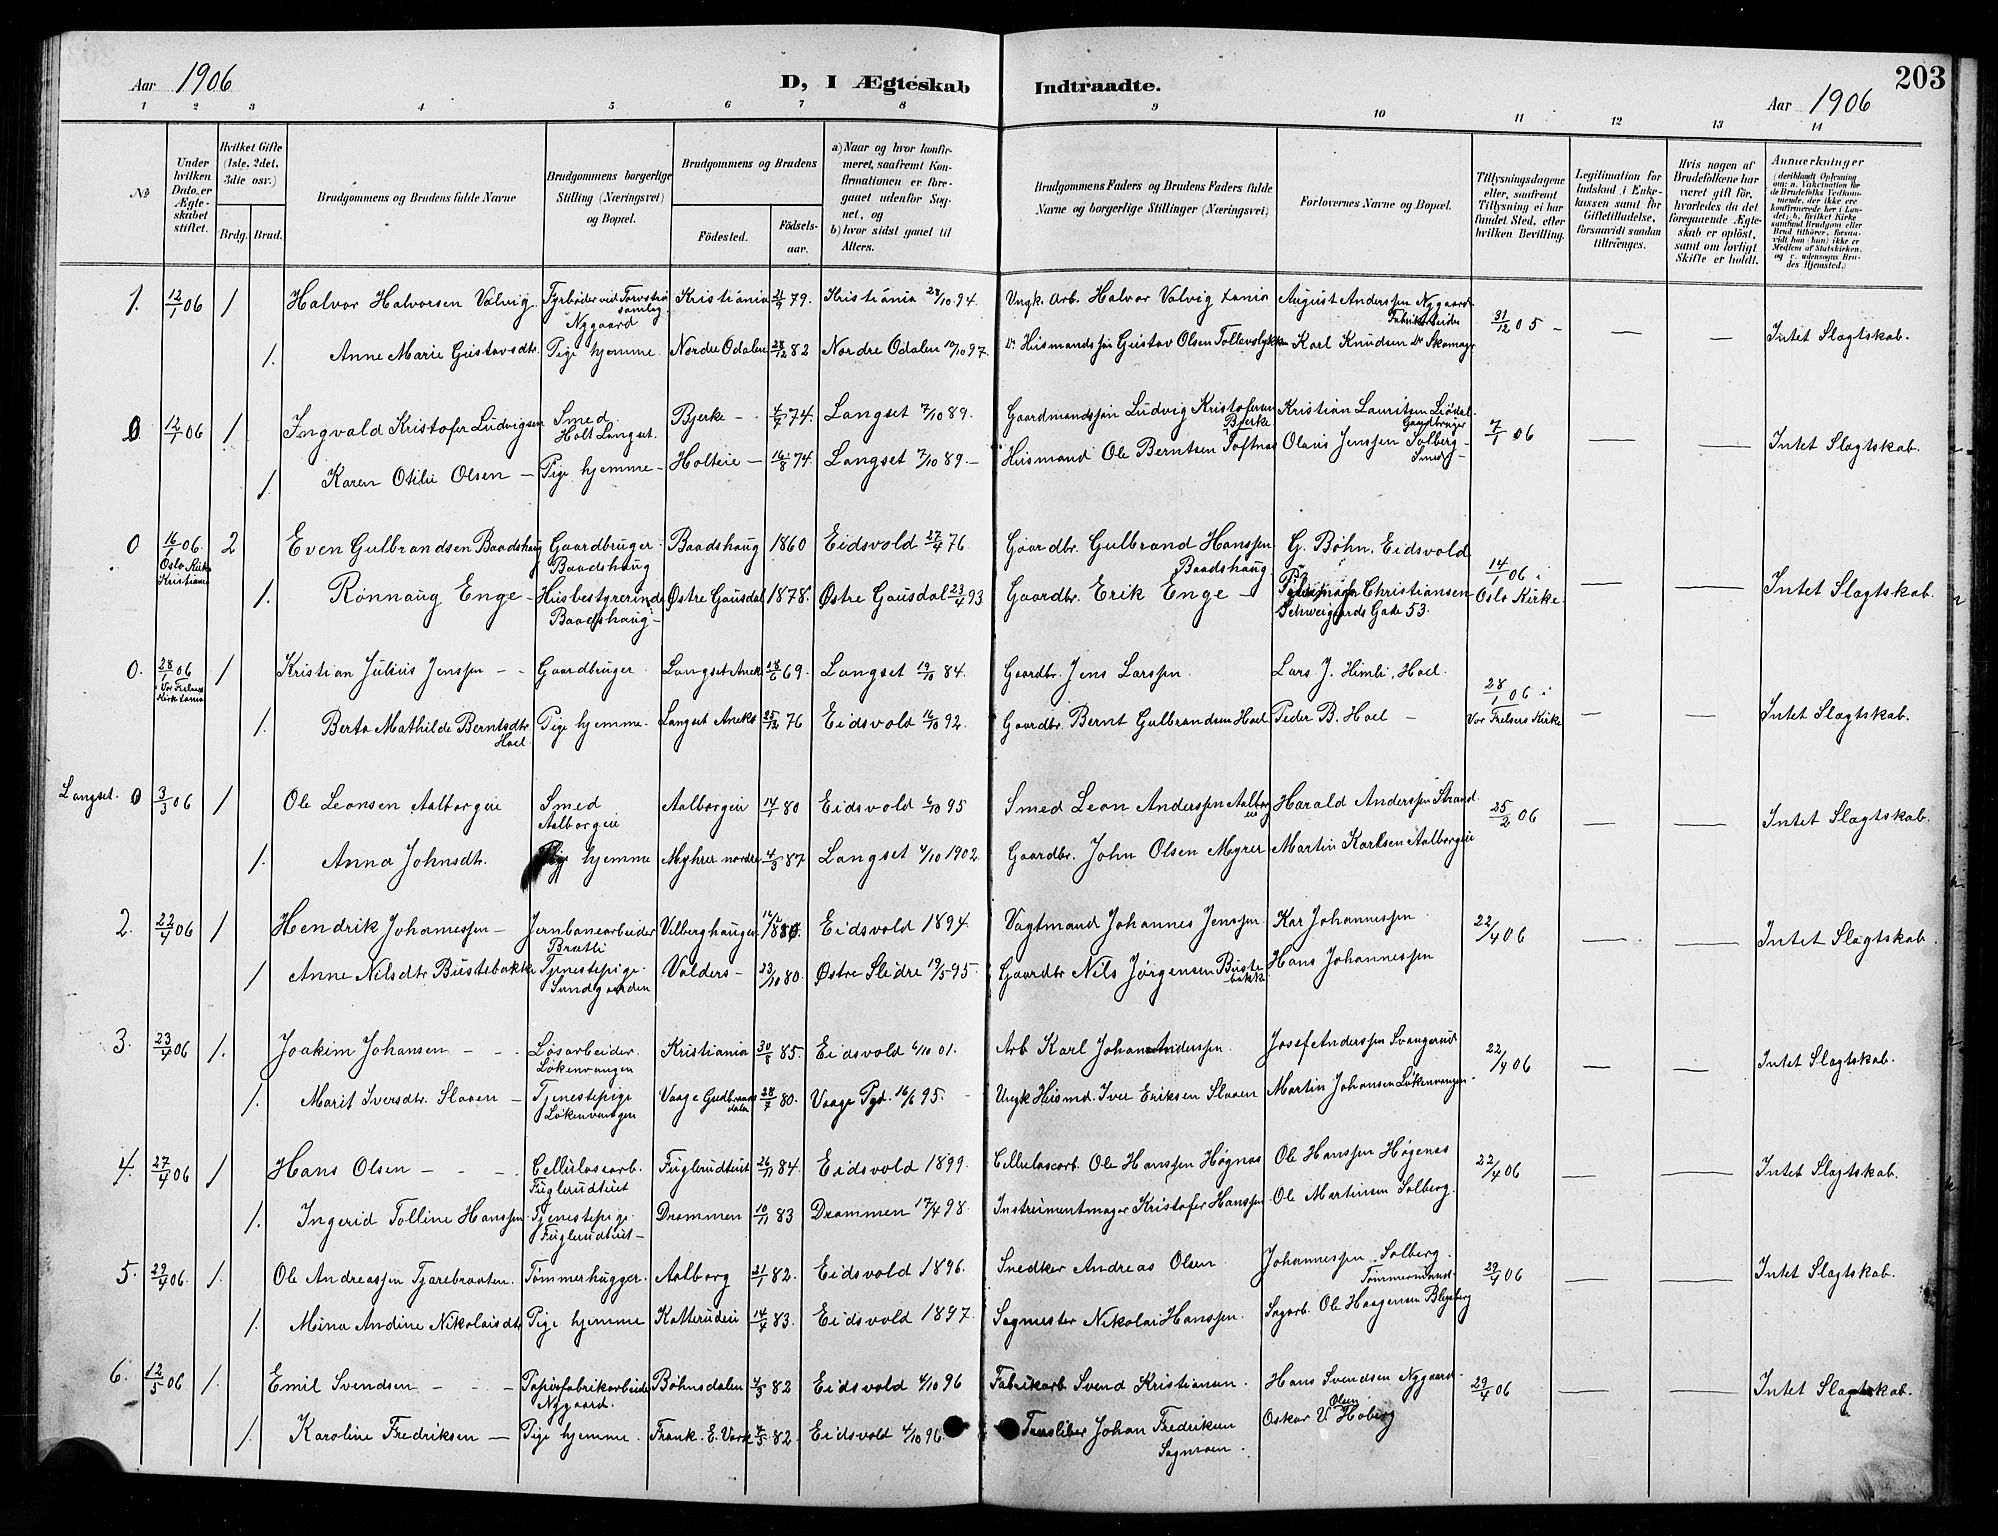 203
Aar 1906
D, I Ægteskab Indtraadte.
Aar 1906
1 2 3 4 5 6 7 8 9 10 11 12 13 14
No
Under hvilken Dato er Ægteskabet stiftet.
Hvilket Gifte (1ste, 2det, 3die osv.)
Brdg. Brud.
Brudgommens og Brudens fulde Navne
Brudgommens borgerlige Stilling (Næringsvei) og Bopæl.
Brudgommens og Brudens
Födested. Födselsaar.
a) Naar og hvor konfirmeret, saafremt Konfirmationen er foregaaet udenfor Sognet, og
b) hvor sidst gaaet til Alters.
Brudgommens Faders og Brudens Faders fulde Navne og borgerlige Stillinger (Næringsvei)
Forlovernes Navne og Bopæl.
Tillysningsdagene eller, saafremt Tillysning ei har fundet Sted, efter hvilken Bevilling.
Legitimation for Indskud i Enkekassen samt for Giftetilladelse, forsaavidt saadan tiltrænges.
Hvis nogen af Brudefolkene har været gift för, hvorledes da det foregaaende Ægteskab er oplöst, samt om lovligt Skifte er holdt.
Anmærkninger (deriblandt Oplysning om: a. Vakcination for de Brudefolks Vedkommende, der ikke ere konfirmerede her i Landet; b. hvilket Kirkesamfund Brudgom eller Brud tilhører, forsaavidt han (hun) ikke er Medlem af Statskirken, og c. udensogns Brudes Hjemsted.)
1. 12/1 06 1 Halvor Halvorsen Valvig Fyrböder ved Nygaard Kristiania 21/9 79. Kristiania 28/10 94. Ungk. Arb. Halvor Valvig August Anderssen Nygaard Fabrikarbeider 31/12 05 - — Intet Slægtskab.
1. Anne Marie Gustavsdtr. Pige hjemme. Nordre Odalen 28/12 82 Nordre Odalen 10/10 97. Husmandssön Gustav Olsen Karl Knudsen Skomager
0 12/1 06 1 Ingvald Kristofer Ludvigsen Smed Holt Langset. Bjerke - 4/7 74. Langset 7/10 89. Gaardmandssön Ludvig Kristofersen Bjerke Kristian Lauritsen Gaardbruger 7/1 06 — — Intet Slægtskab.
1. Karen Otilie Olsen - Pige hjemme - Holteie - 16/8 74. Langset 7/10 89. - Husmand Ole Berntsen Toftnes Olaus Jenssen Solberg Smed
0 16/1 06. Oslo Kirke Kristiania 2 Even Gulbrandsen Baadshaug Gaardbruger Baadshaug Baadshaug 1860 Eidsvold 27/4 76 Gaardbr. Gulbrand Hanssen Baadshaug G. Böhn, Eidsvold 14/1 06 i Oslo Kirke. — — Intet Slægtskab.
1. Rönnaug Enge - Husbestyrerinde Baadshaug - Østre Gausdal 1878. Østre Gausdal 23/4 93 Gaardbr. Erik Enge - Christiansen Schweigaards Gade 53.
0. 28/1 06 Vor Frelsers Kirke 1 Kristian Julius Jenssen - - Gaardbruger. Langset Aneks 18/6 69. Langset 19/10 84. Gaardbr. Jens Larssen. Lars J. Himli, Hoel. 28/1 06 i Vor Frelsers Kirke — — Intet Slægtskab.
1. Berta Mathilde Berntsdtr. Hoel Pige hjemme. Langset Aneks 25/12 76 Eidsvold 16/10 92. Gaardbr. Bernt Gulbrandsen Hoel Peder B. Hoel -
Langset. 0 3/3 06 1 Ole Leonsen Aalborgeie Smed Aalborgeie Aalborgeie 14/1 80 Eidsvold 6/10 95 Smed Leon Anderssen Aalborgeie Harald Anderssen Strand 25/2 06 — — Intet Slægtskab.
1. Anna Johnsdtr. Pige hjemme Myhrer nordre 4/3 87. Langset 4/10 1902. Gaardbr. John Olsen Myrer Martin Karlsen Aalborgeie
2. 22/4 06 1 Hendrik Johannessen - Jernbanearbeider Bratli Vilberghaugen Eidsvold 1894. Vagtmand Johannes Jenssen Kar Johannessen 22/4 06 — — Intet Slægtskab.
1 Anne Nilsdtr Bustebakke Tjenestepige Sundgaarden Valders - 23/10 80. Østre Slidre 19/5 95. Gaardbr Nils Jörgensen Bustebakke Hans Johannessen
3. 23/4 06 1. Joakim Johansen - - Lösarbeider. Lökenvangen Kristiania 30/8 85. Eidsvold 6/10 01. Arb Karl Johan Anderssen. Josef Anderssen Svangerud 22/4 06 — — Intet Slægtskab.
1. Marit Iversdtr. Slaaen - Tjenestepige Lökenvangen Vaage Gudbrandsdalen 28/7 80. Vaage Pgd. 16/6 95. - Ungk Husmd. Iver Eriksen Slaaen Martin Johansen Lökenvangen
4. 27/4 06 1 Hans Olsen - - - Cellulosearb. Fuglerudtuet Fuglerudtuet 26/11 84. Eidsvold 1899. Cellulosearb. Ole Hanssen Høgnas Ole Hanssen Høgenas 22/4 06 — — Intet Slægtskab.
1. Ingerid Tolline Hanssen. Tjenestepige. Fuglerudtuet - Drammen 10/11 83 Drammen 17/4 98. Instrumentmager Kristofer Hanssen Ole Martinsen Solberg.
5. 29/4 06. 1. Ole Andreassen Tjærebraaten. Tømmerhugger. Aalborg 21/1 82. Eidsvold 1896. Snedker Andreas Olsen. Johannessen Solberg. Tömmermand 29/4 06 — — Intet Slægtskab.
1. Mina Andine Nikolaisdtr Pige hjemme Katterudeie 14/4 83. Eidsvold 1897. Sagmester Nikolai Hanssen. Sagarb. Ole Haagensen Blegeberg
6. 12/5 06 1. Emil Svendsen - - - Papirfabrikarbeider Nygaard. Böhnsdalen 4/3 82 Eidsvold 4/10 96 Fabrikarb Svend Kristiansen. Hans Svendsen Nygaard 29/4 06 — — Intet Slægtskab.
1. Karoline Fredriksen - Pige hjemme. Frank. E. Værk 2/3 82. Eidsvold 4/10 96. Træsliber Johan Fredriksen Sagmoen. Oskar V. Olsen Hoberg